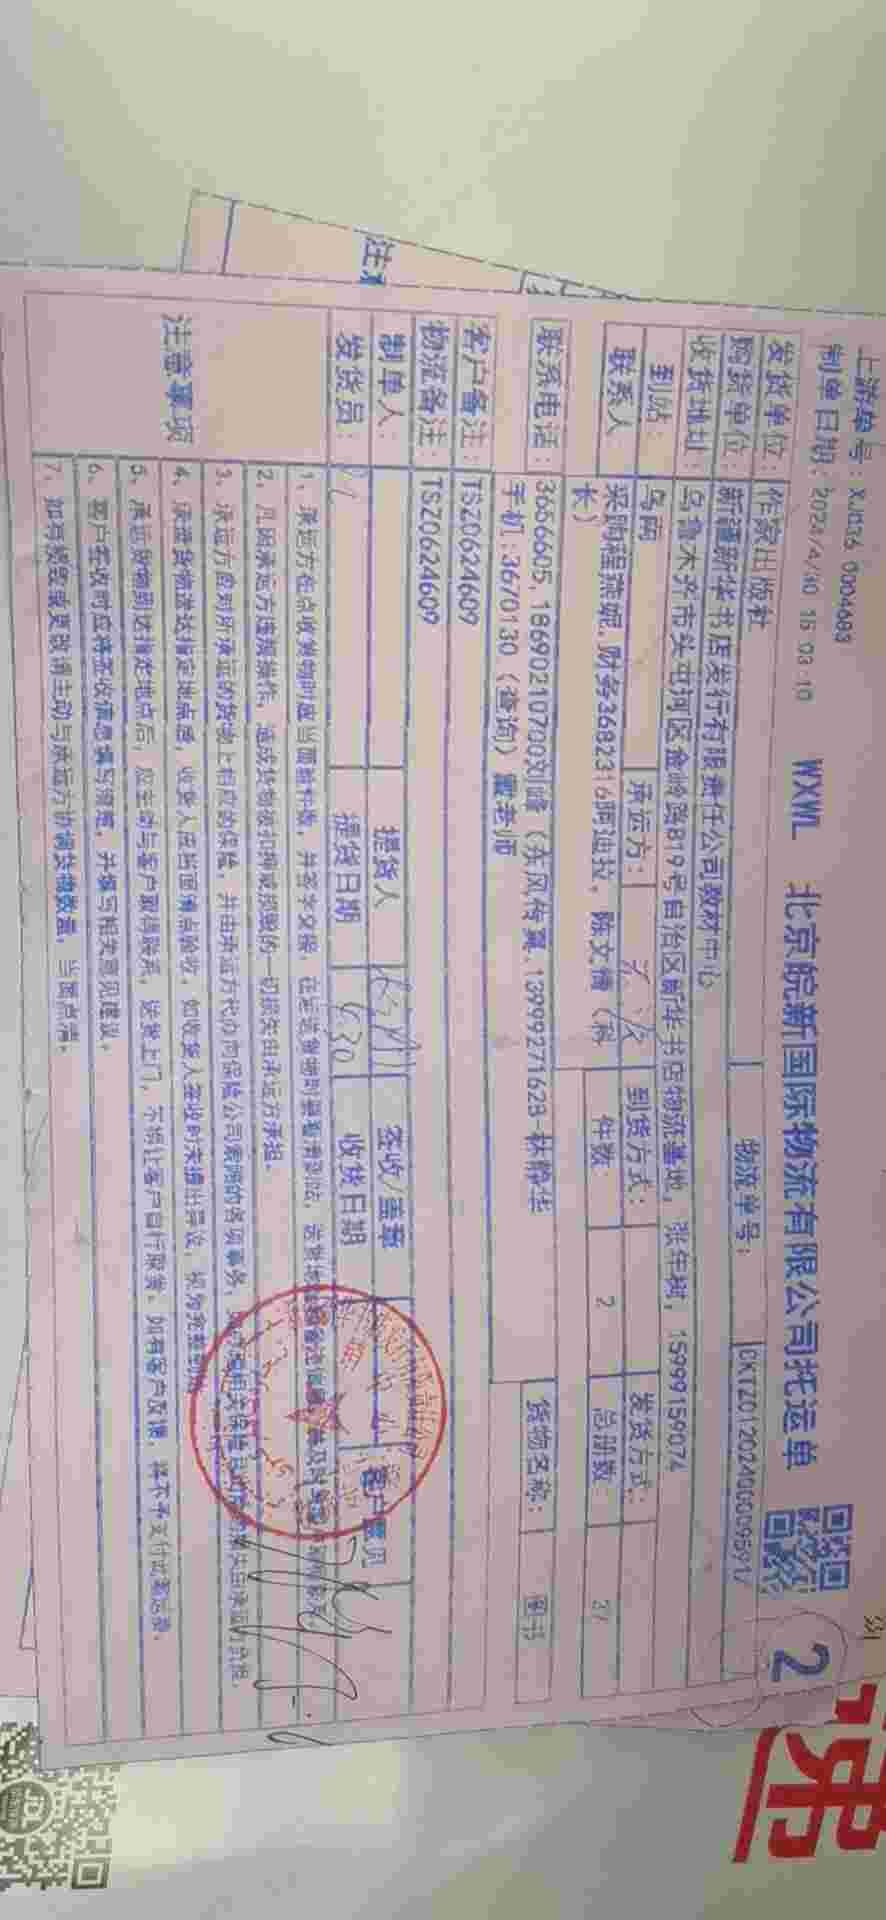 上游单号：XJ036 0004683
制单日期：2024/4/30 15:03:10
WXWL 北京皖新国际物流有限公司托运单
2
发货单位：作家出版社 物流单号：
购货单位：新疆新华书店发行有限责任公司教材中心
收货地址：乌鲁木齐市头屯河区金岭路819号自治区新华书店物流基地，张年树，15999159074
到站：乌丽 承运方： 到货方式： 发货方式：
联系人 采购程燕妮,财务3682316阿迪拉，陈文倩（科长） 件数： 2 总册数： 37
联系电话：3656605,18690210700刘峰（东风传翼,13999271628-林静华
手机:3670130（查询）霍老师 货物名称： 图书
客户备注：TSZ0624609
物流备注：TSZ0624609
制单人： 提货人 签收/盖章 客户意见
发货员： 提货日期 4.30 收货日期
注意事项
1、承运方在点收货物时应当面验件数，并签字交接，在运送货物时要看清到站，
2、凡因承运方违规操作，造成货物被扣押或损毁的一切损失由承运方承担。
3、承运方应到所承运的货物上相应的保险，并由承运方代办向保险公司索赔的各项事务，
4、承运货物送达指定地点后，收货人应当面清点验收，如收货人签收时未提出异议，视为完整到货
5、承运货物到达指定地点后，应主动与客户取得联系，送货上门，不得让客户自行取货。如有客户反馈，将不予支付此票运费。
6、客户签收时应将签收信息填写清楚，并填写相关意见建议。
7、如有损毁或更改请主动与承运方协调货物数量，当面点清。
注意
递